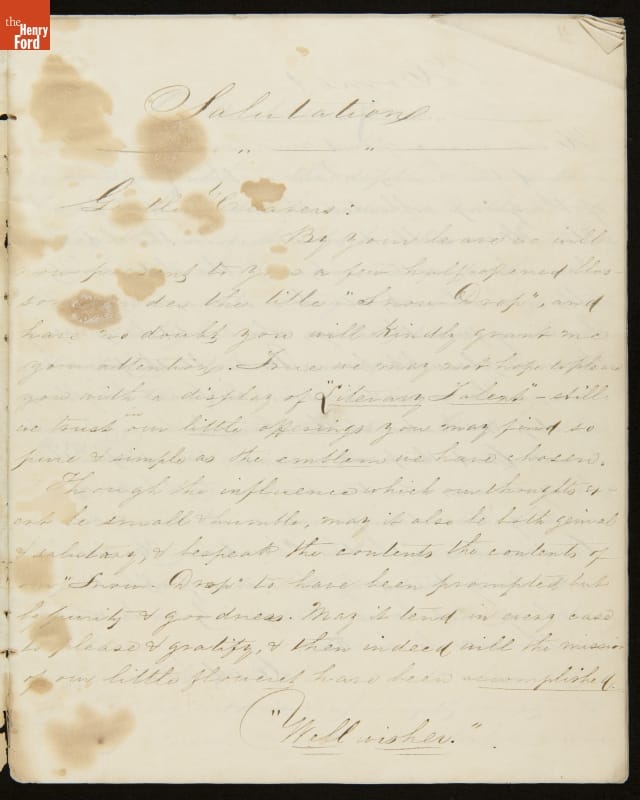 the Henry Ford
Salutation
" "
Gentle Hearers:
By your leave we will
now present to you a few half-opened blos-
der the title "Snow Drop", and
have no doubt you will kindly grant me
your attention. True we may not hope to please
you with a display of "Literary Talent" - still
we trust in our little offerings you may find so
pure & simple as the emblem we have chosen.
Though the influence which our thoughts ex-
ert be small & humble, may it also be both genial
& salutary, & bespeak the contents the contents of
"Snow-Drop" to have been prompted but
purity & goodness. May it tend in every case
to please & gratify, & then indeed will the mission
of our little floweret have been accomplished.
"Well wisher."